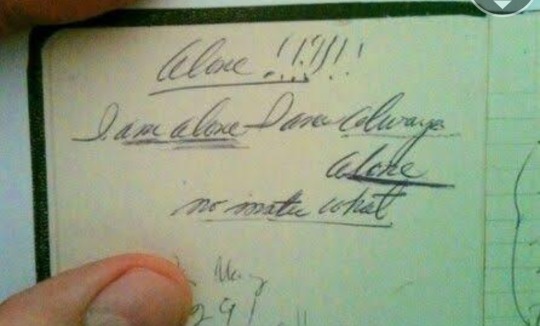 Alone !!!!!!
I am alone – I am always
alone
no mater what